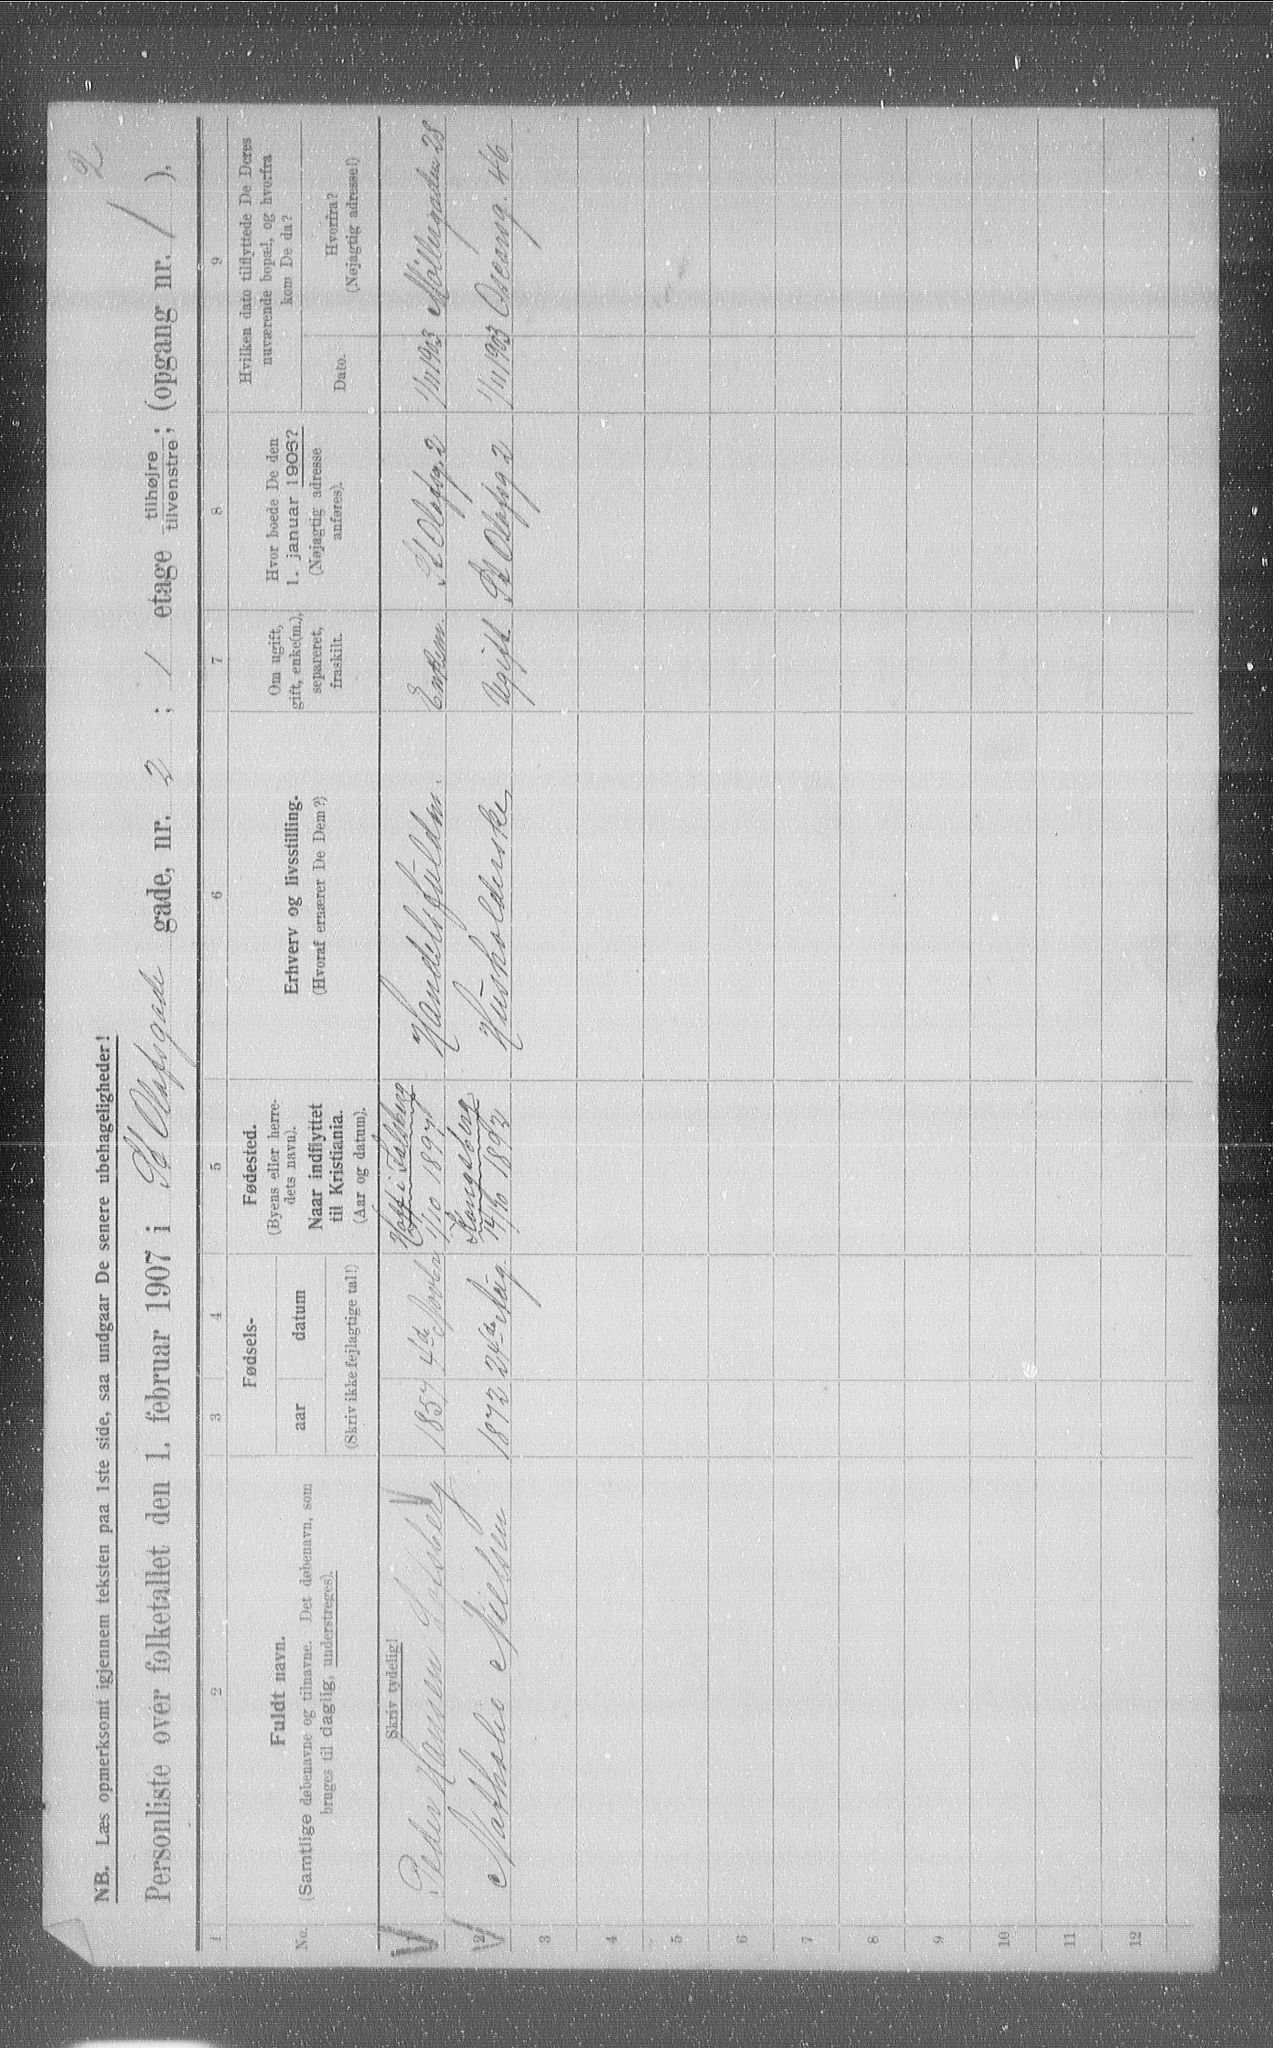 2
NB. Læs opmerksomt igjennem teksten paa 1ste side, saa undgaar De senere ubehageligheder!
Personliste over folketallet den 1. februar 1907 i St Olafsgade gade, nr. 2 ; 1 etage tilhøjre / tilvenstre ; (opgang nr. / ).
1 2 3 4 5 6 7 8 9
No.
Fuldt navn.
(Samtlige døbenavne og tilnavne. Det døbenavn, som
bruges til daglig, understreges).
Fødsels-
aar datum
(Skriv ikke fejlagtige tal!)
Fødested.
(Byens eller herre-
dets navn).
Naar indflyttet
til Kristiania.
(Aar og datum).
Erhverv og livsstilling.
(Hvoraf ernærer De Dem?)
Om ugift,
gift, enke(m.),
separeret,
fraskilt.
Hvor boede De den
1. januar 1906?
(Nøjagtig adresse
anføres).
Hvilken dato tilflyttede De Deres
nuværende bopæl, og hvorfra
kom De da?
Dato.
Hvorfra?
(Nøjagtig adresse!)
Skriv tydelig!
1 Peder Hansen 1857 4de 1/10 1897 Handelsfuldm. Enkem. St Olafsg. 2 1/11 1903 Møllergaden 28
2 Nathalie Nielsen 1872 24de Aug. Kongsberg 14/10 1892 Husholderske Ugift St Olafsg 2 1/11 1903 Oscarsg. 46
3
4
5
6
7
8
9
10
11
12